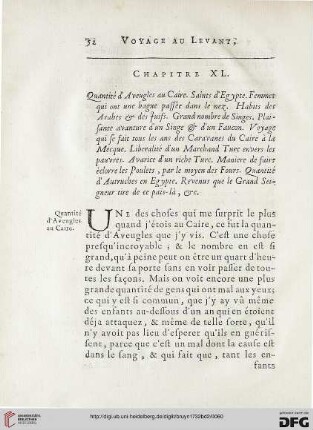 32 VOYAGE AU LEVANT,
CHAPITRE XL.
Quantité d'Aveugles au Caire. Saints d'Egypte. Femmes
qui ont une bague passée dans le nez. Habits des
Arabes & des Juifs. Grand nombre de Singes. Plai-
sante avanture d'un Singe & d'un Faucon. Voyage
qui se fait tous les ans des Caravanes du Caire à la
Mecque. Liberalité d'un Marchand Turc envers les
pauvres. Avarice d'un riche Turc. Maniere de faire
éclore les Poulets, par le moyen des Fours. Quantité
d'Autruches en Egypte. Revenus que le Grand Sei-
gneur tire de ce païs-là, &c.
Quantité
d'Aveugles
au Caire.
UNE des choses qui me surprit le plus
quand j'étois au Caire, ce fut la quan-
tité d'Aveugles que j'y vis. C'est une chose
presqu'incroyable; & le nombre en est si
grand, qu'à peine peut on être un quart d'heu-
re devant sa porte sans en voir passer de tou-
tes les façons. Mais on voit encore une plus
grande quantité de gens qui ont mal aux yeux;
ce qui y est si commun, que j'y ay vû même
des enfants au-dessous d'un an qui en étoient
déja attaquez, & même de telle sorte, qu'il
n'y avoit pas lieu d'esperer qu'ils en guéris-
sent, parce que c'est un mal dont la cause est
dans le sang, & qui fait que, tant les en-
fants
http://digi.ub.uni-heidelberg.de/diglit/bruyn1732bd2/0060
UNIVERSITÄTS-
BIBLIOTHEK
HEIDELBERG
DFG